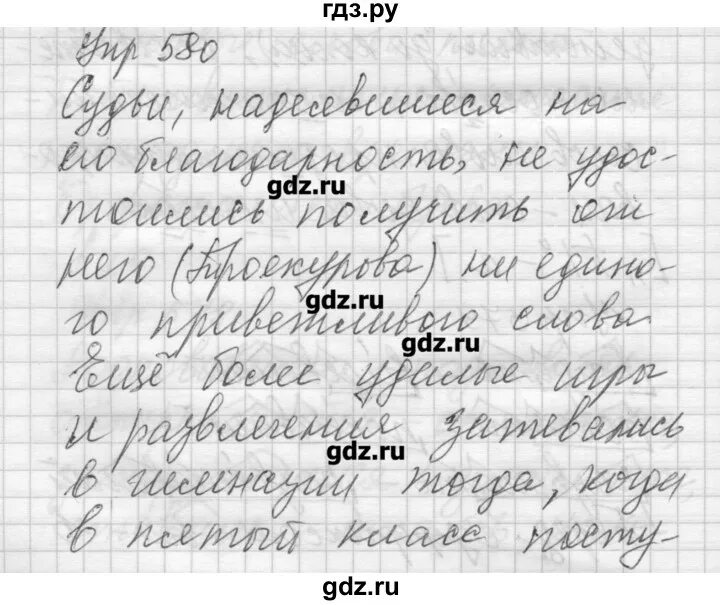 гдз.ру
Упр 580
Судьи, надеявшиеся на
его благодарность, не удос-
тоились получить от
gdz.ru
него (Троекурова) ни едино-
gdz.ru
го приветливого слова.
gdz.ru
Ещё более удалые игры
и развлечения затевались
в гимназии тогда, когда
gdz.ru
в пятый класс посту-
gdz.ru